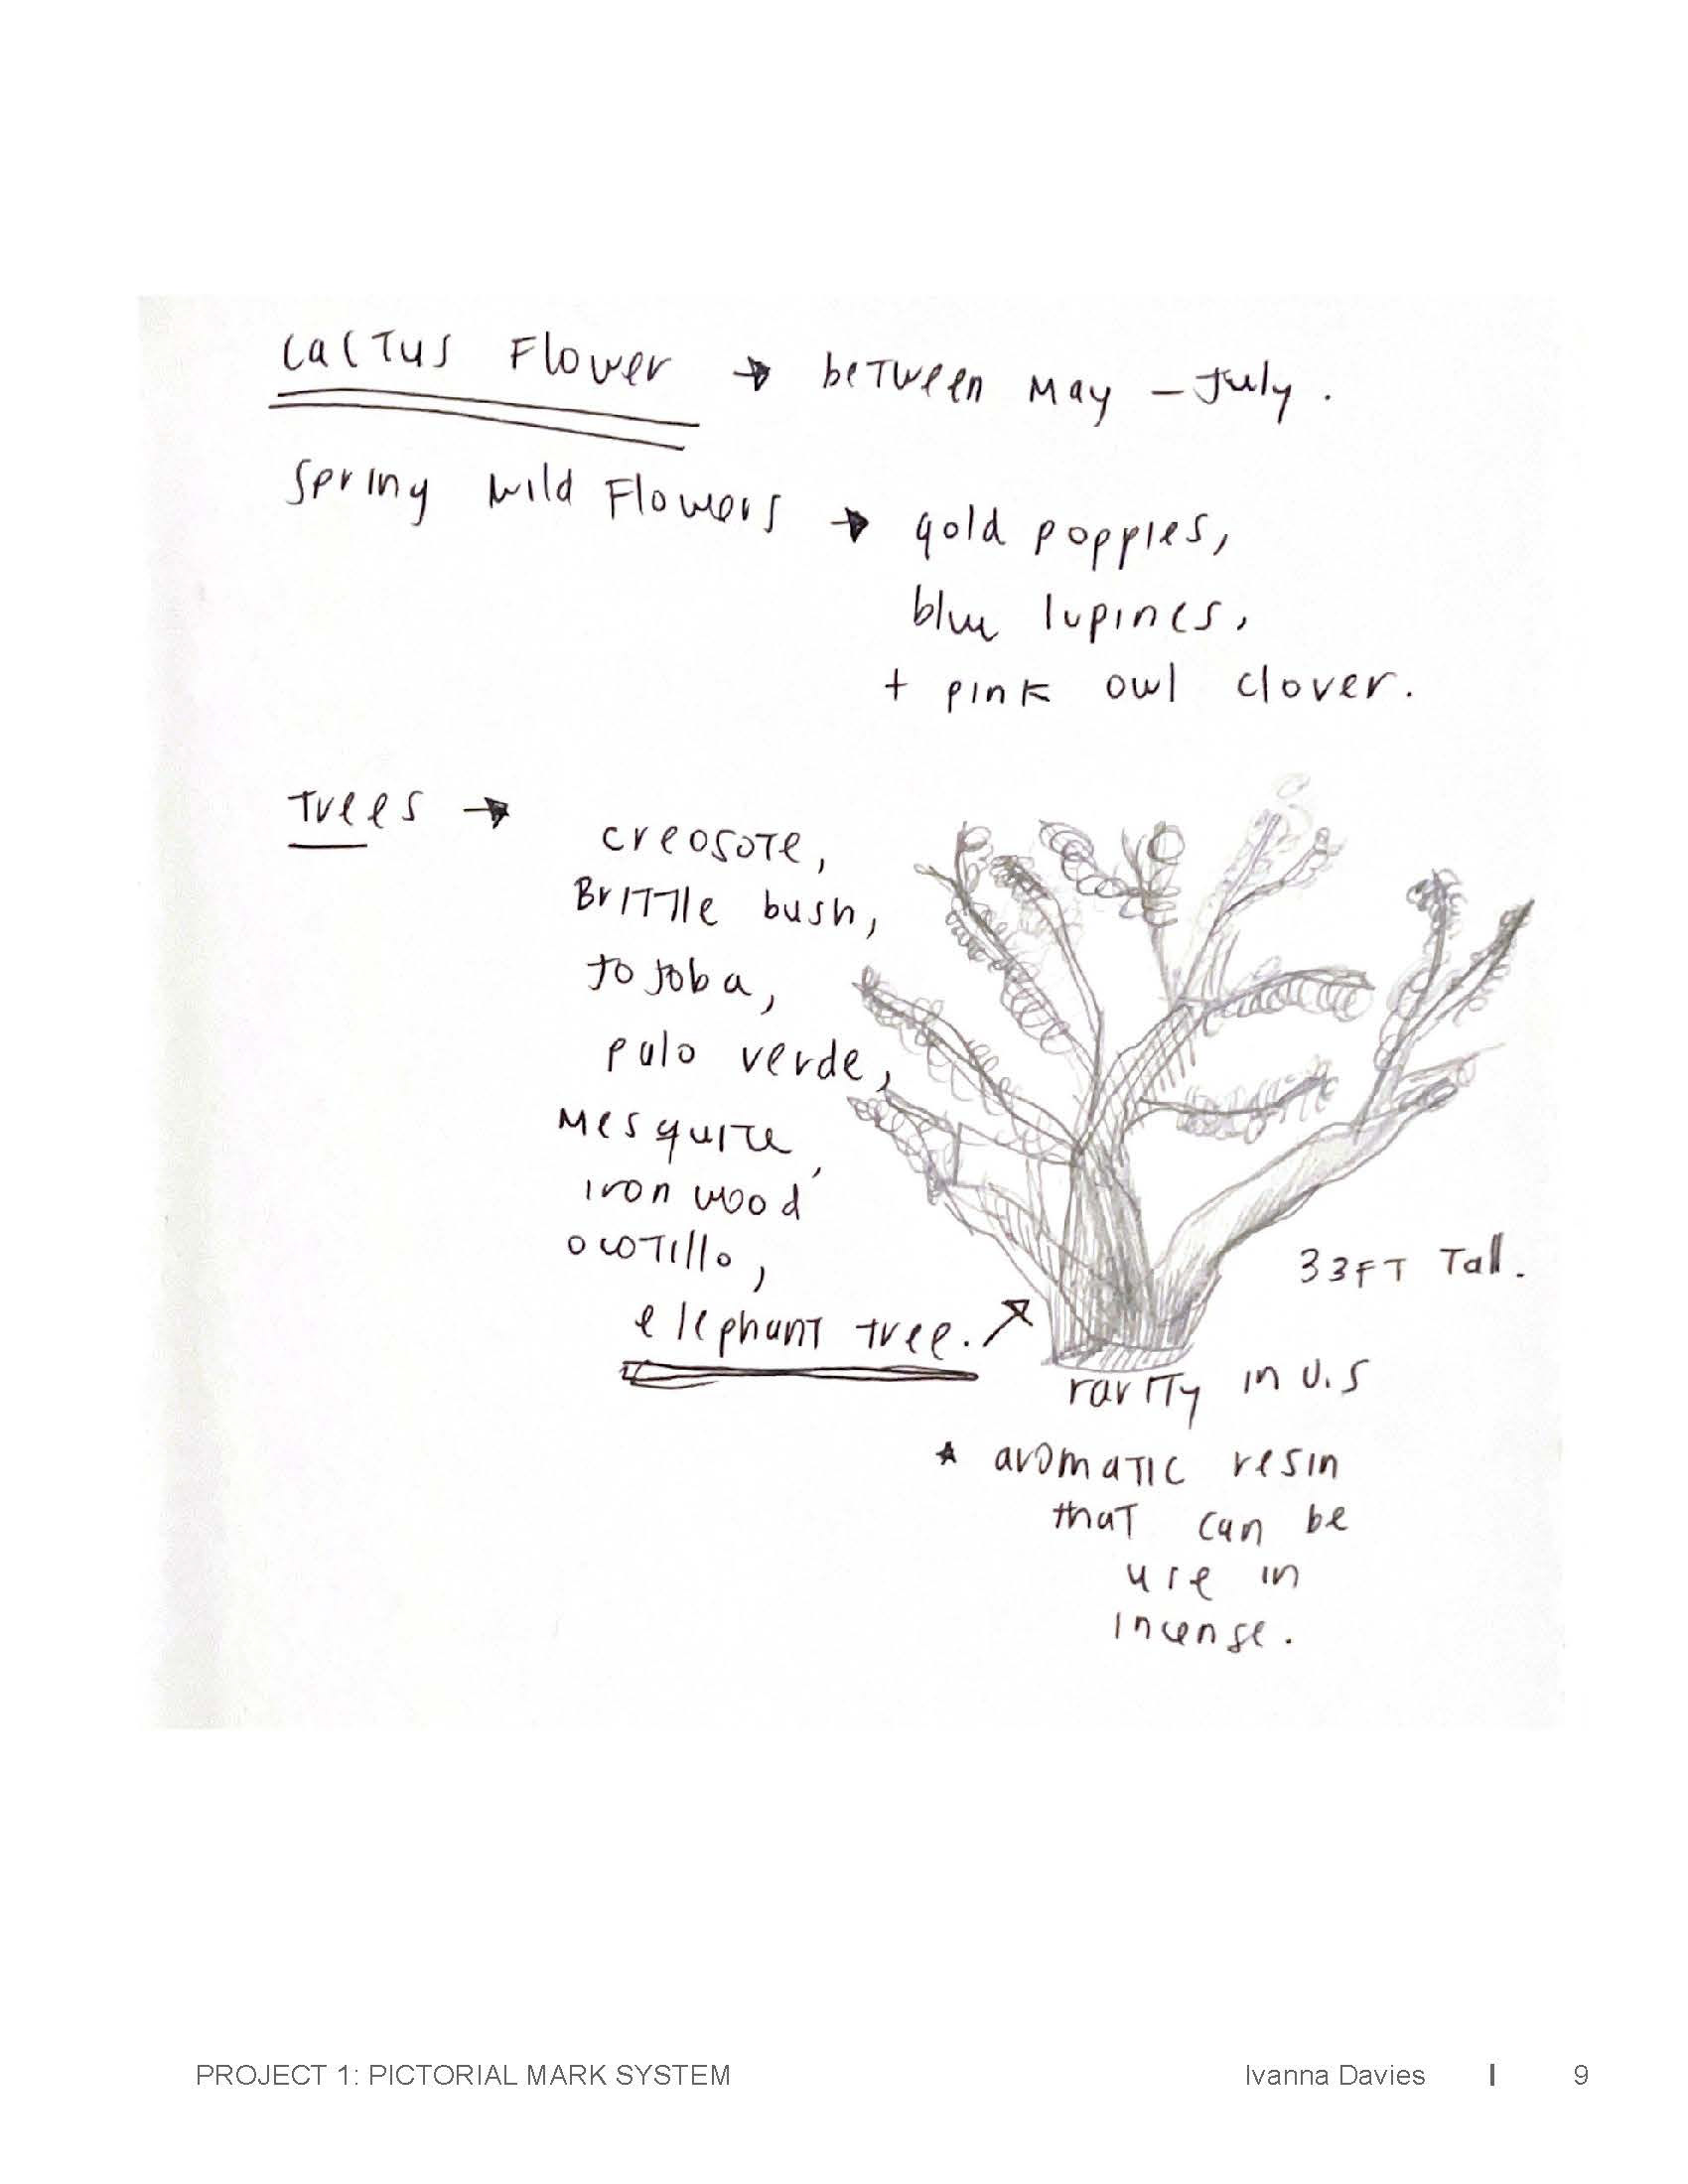 Cactus Flower → between May – July.
Spring wild Flowers → gold poppies,
blue lupines,
+ pink owl clover.
Trees →
creosote,
Brittle bush,
Jojoba,
palo verde,
Mesquite,
iron wood
ocotillo,
elephant tree.
33FT Tall.
rarity in U.S
★ aromatic resin
that can be
use in
incense.
PROJECT 1: PICTORIAL MARK SYSTEM Ivanna Davies | 9